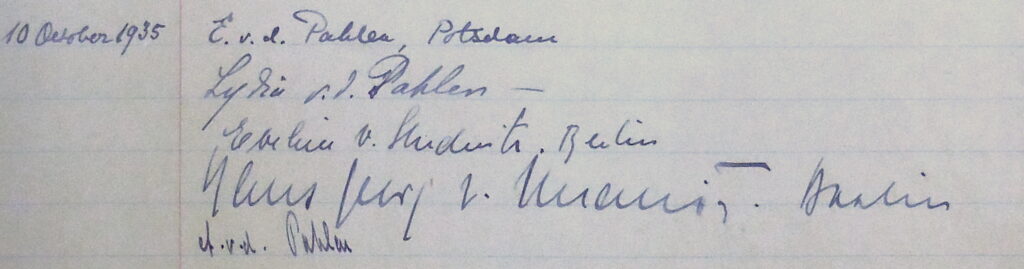 10 October 1935 E. v. d. Pahlen, Potsdam
Lydia v. d. Pahlen —
Evelin v. Studnitz. Berlin
Hans Georg v. Berlin
v. d. Pahlen